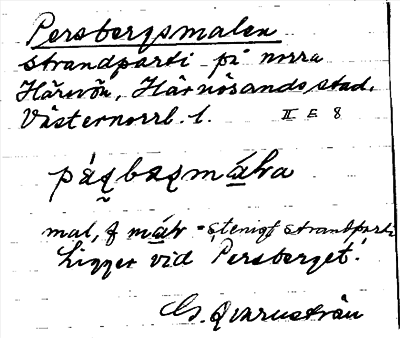 Persbergsmalen
strandparti på norra
Härnön, Härnösands stad.
Västernorrl. l. II E 8
mal, f = stenigt strandparti
Ligger vid Persberget.
G. Qvarnström